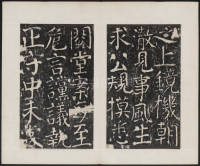 上鏡機朝
徹見事風生
求公規摸悉
閣堂案必至
危言讜議執
正守中未